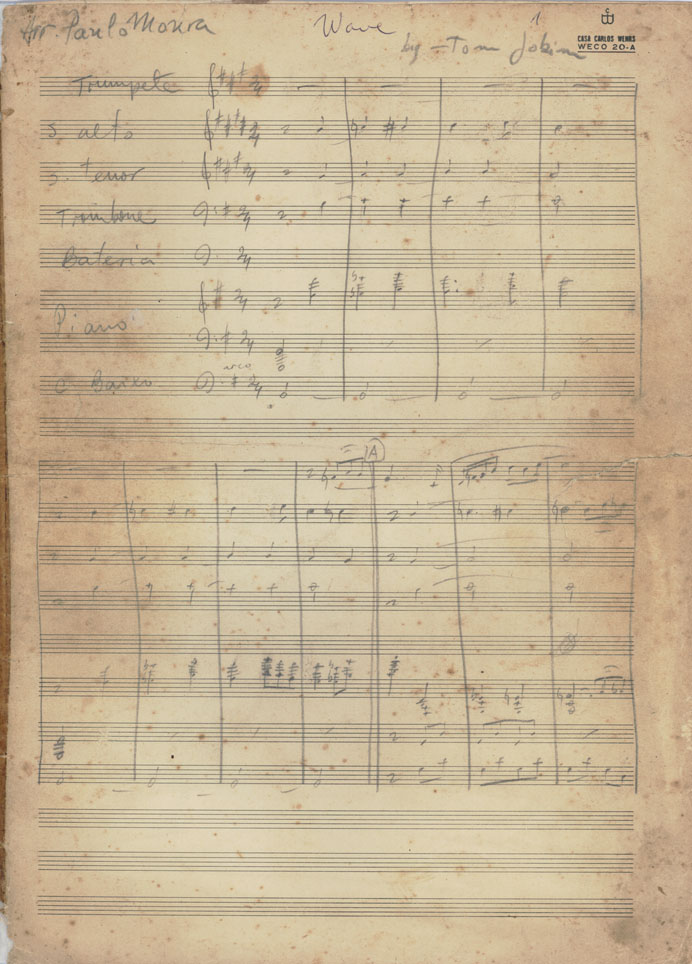 Arr Paulo Moura
Wave
1
by - Tom Jobim
CASA CARLOS WEHRS
WECO 20-A
Trumpete
S. alto
S. tenor
Trombone
Bateria
Piano
arco
C. Baixo
A